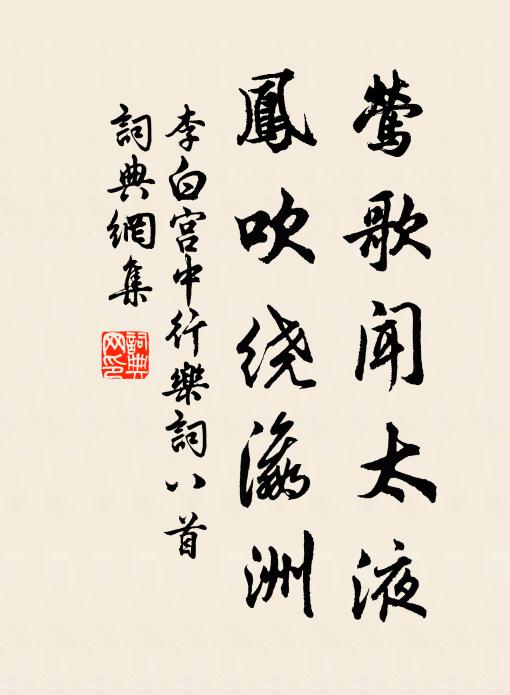 莺歌闻太液
鳳吹绕瀛洲
李白宫中行樂詞八首
詞典網集
詞典网印